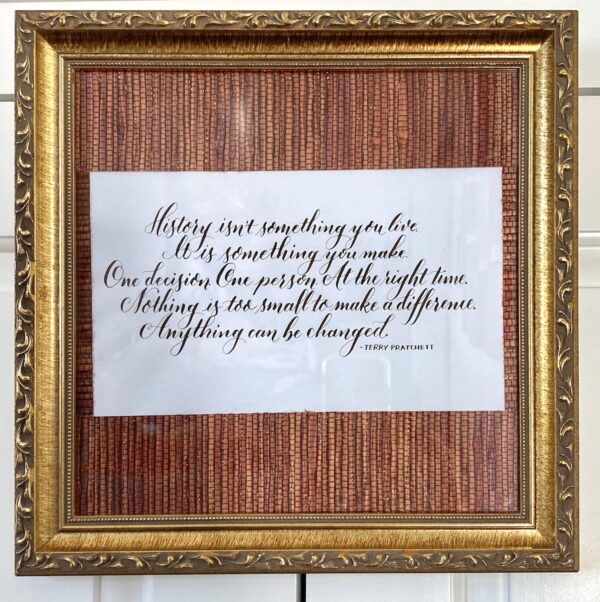 History isn't something you live.
It is something you make.
One decision. One person. At the right time.
Nothing is too small to make a difference.
Anything can be changed.
-TERRY PRATCHETT